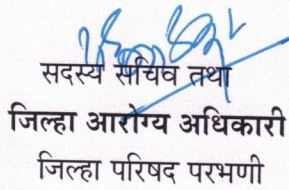 सदस्य सचिव तथा
जिल्हा आरोग्य अधिकारी
जिल्हा परिषद परभणी